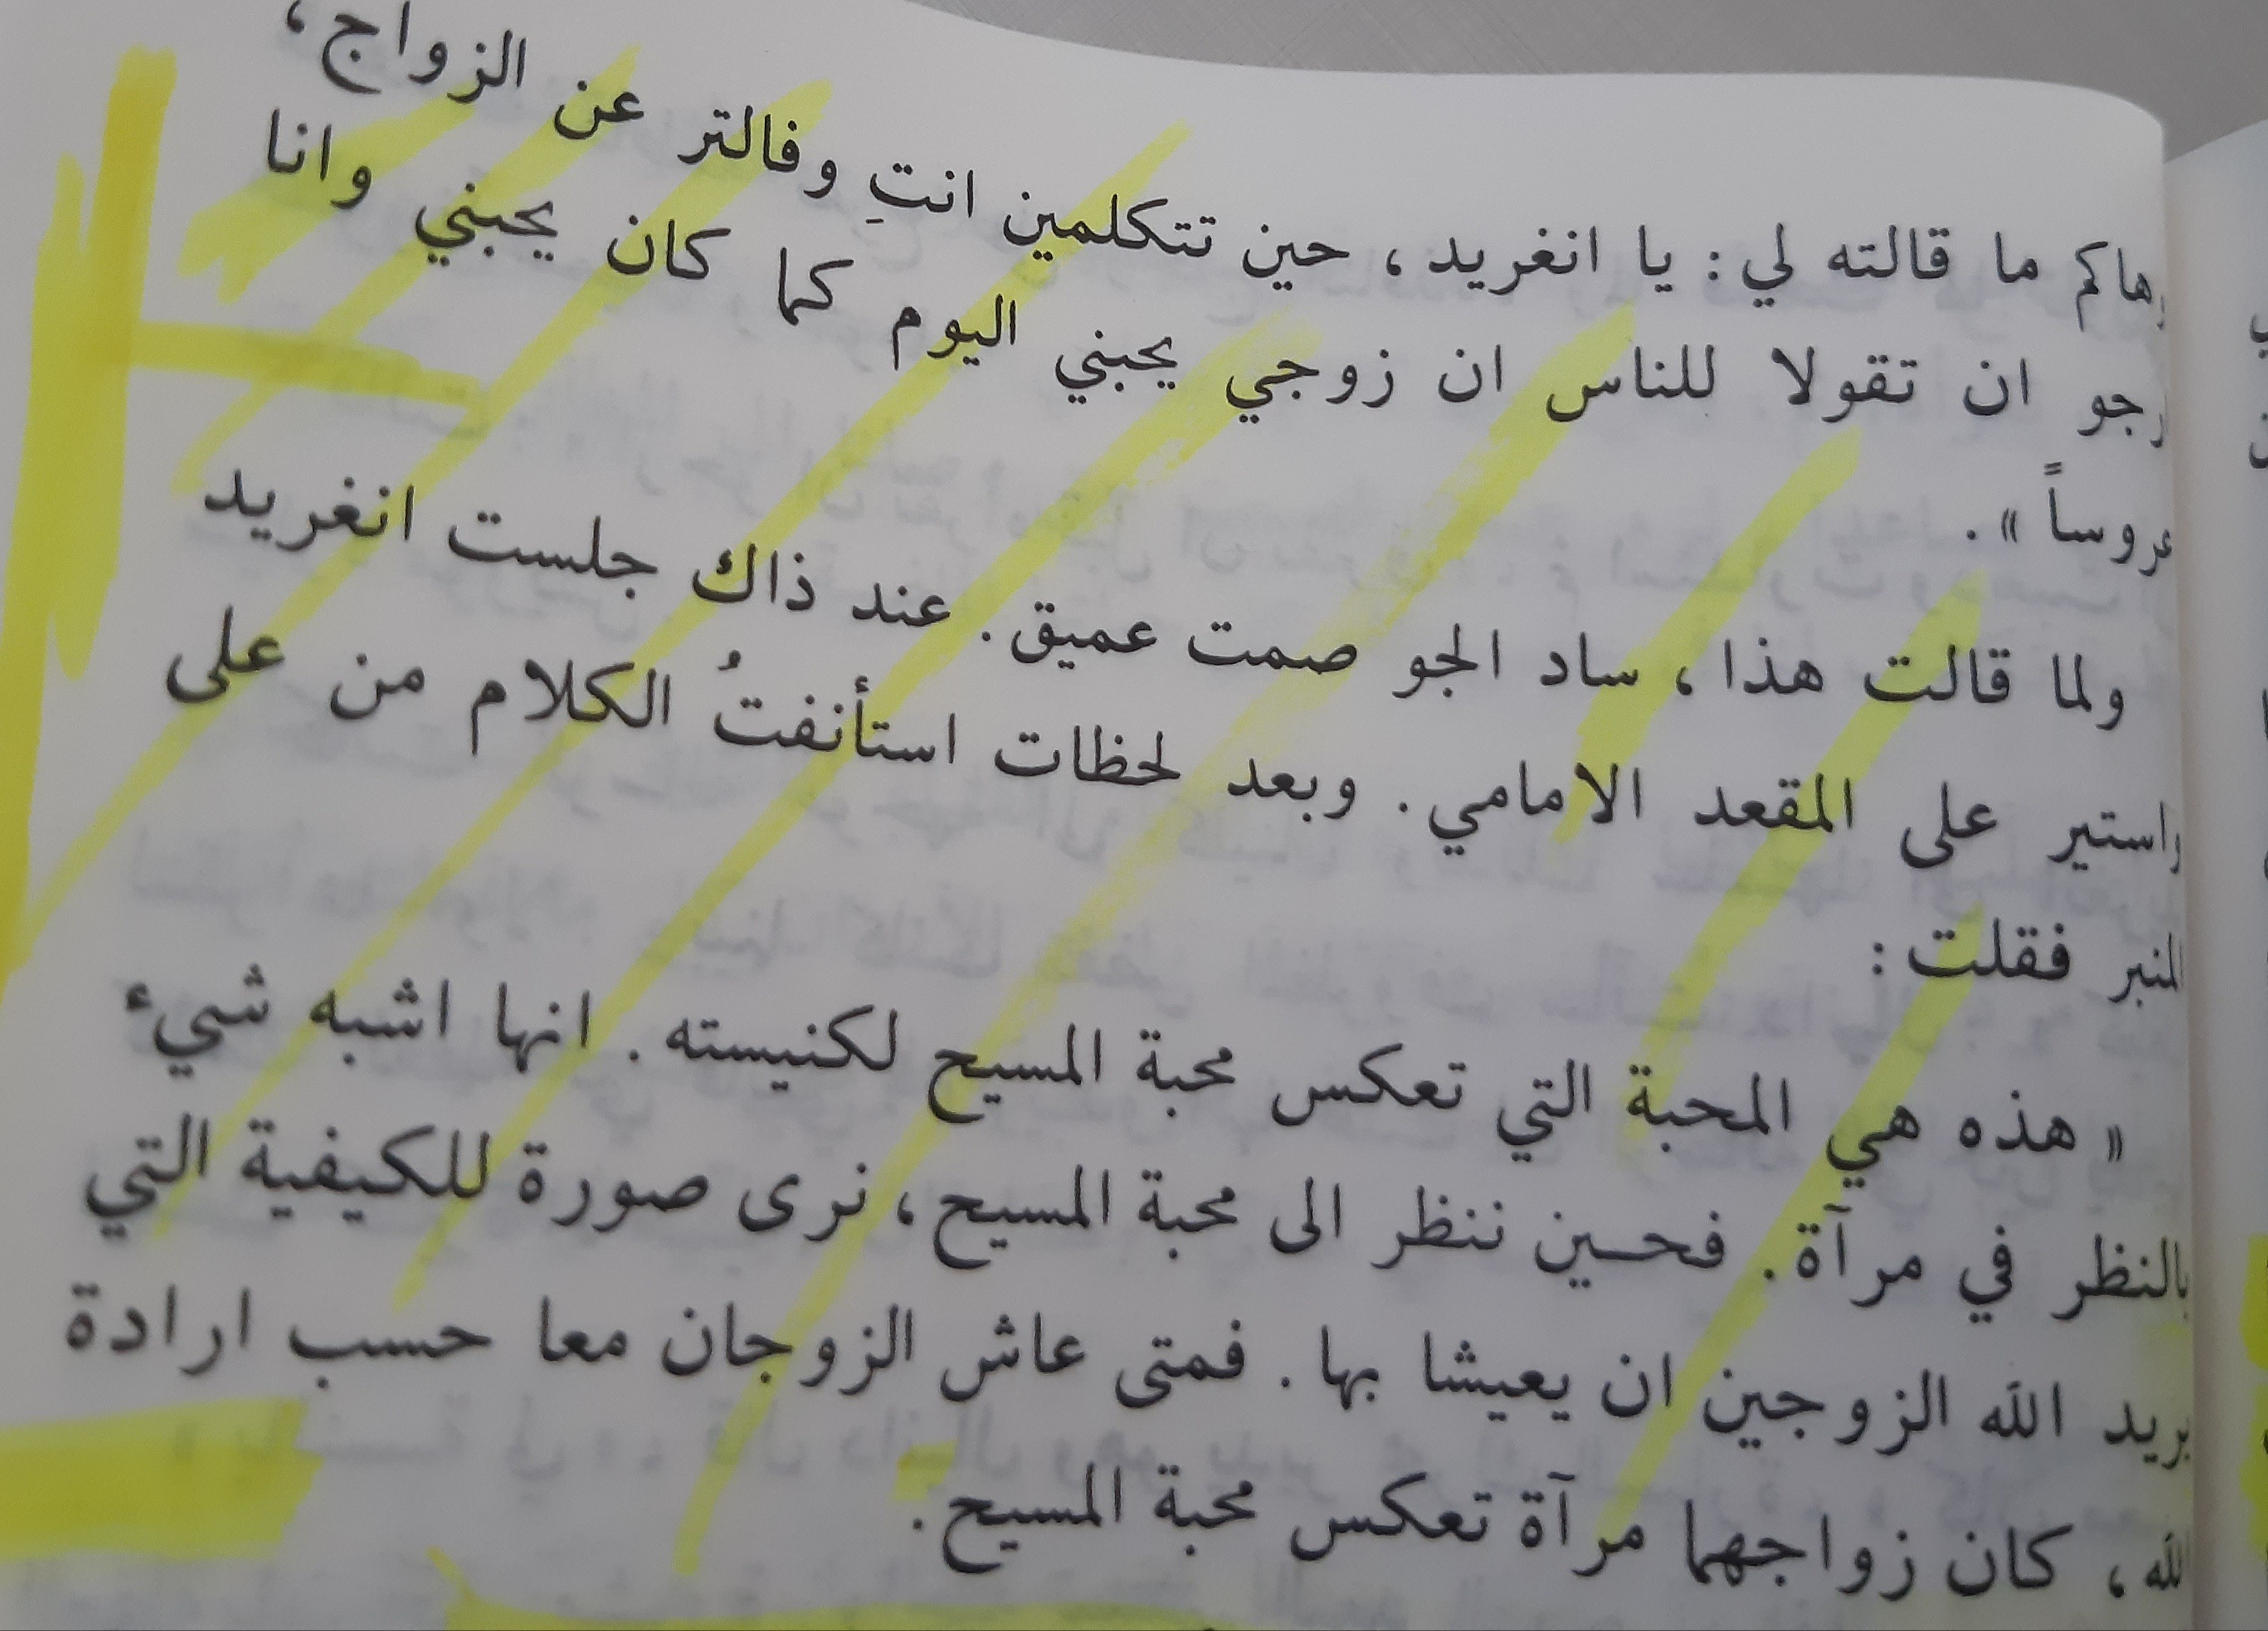 وهاكم ما قالته لي : يا انغريد ، حين تتكلمين انتِ وفالتر عن الزواج ،
ارجو ان تقولا للناس ان زوجي يحبني اليوم كما كان يحبني وانا
عروساً » .
ولما قالت هذا ، ساد الجو صمت عميق . عند ذاك جلست انغريد
واستير على المقعد الامامي . وبعد لحظات استأنفتُ الكلام من على
المنبر فقلت :
« هذه هي المحبة التي تعكس محبة المسيح لكنيسته . انها اشبه شيء
بالنظر في مرآة . فحسين ننظر الى محبة المسيح ، نرى صورة للكيفية التي
يريد الله الزوجين ان يعيشا بها . فمتى عاش الزوجان معا حسب ارادة
الله ، كان زواجهما مرآة تعكس محبة المسيح .